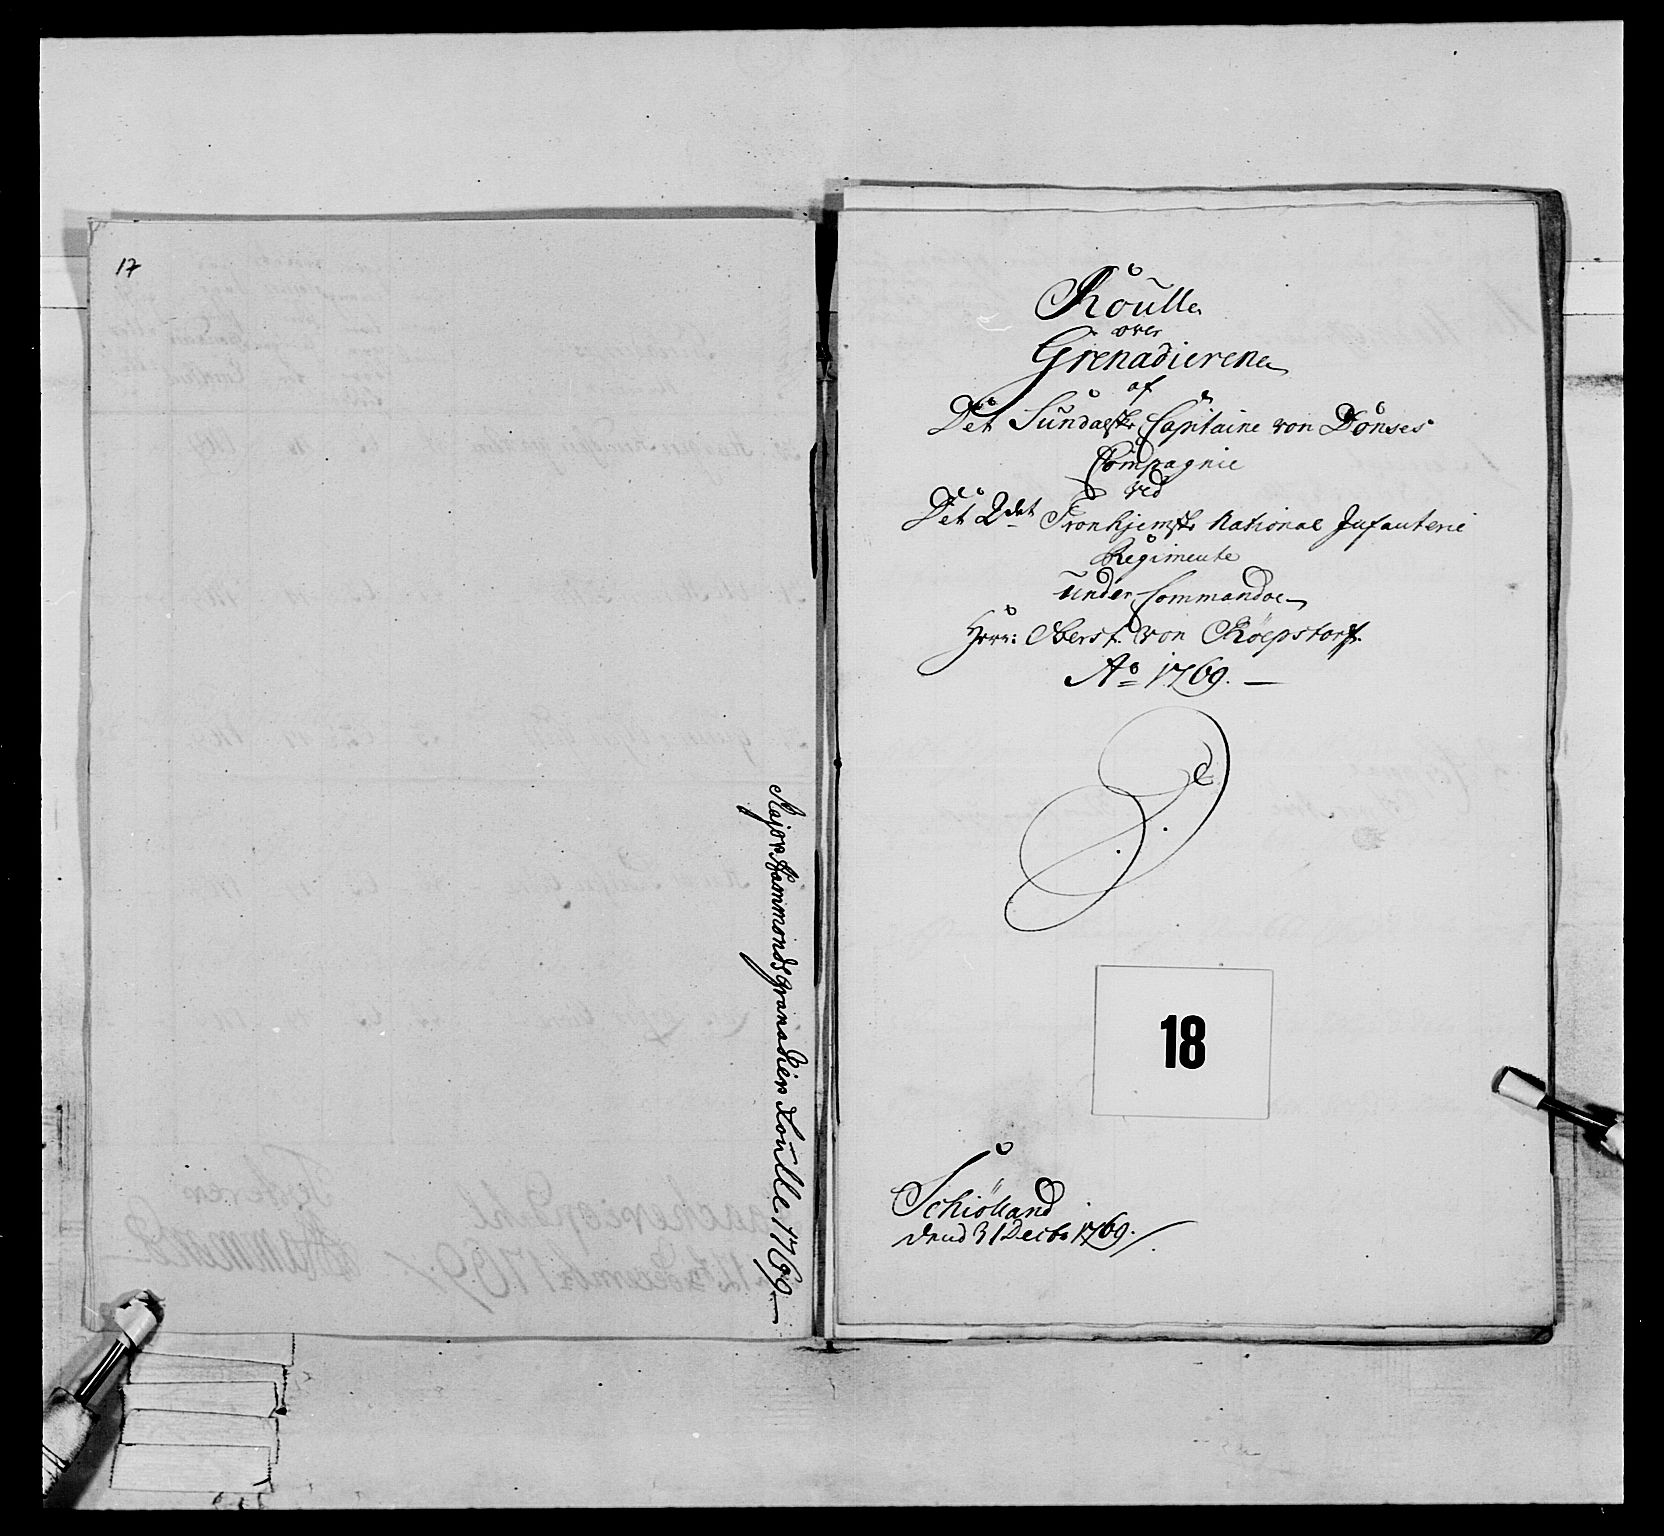 17
Major Hammonds granadier Roulle 1769.
Roulle
over
Grenadierene
af
Det Sundalske Capitaine von Dönses
Compagnie
ved
Det 2det Tronhjemske National Infanterie
Regimente
under Commandoe
Herr: Oberst von Röepstorff.
Ao 1769.
18
Schiölland
dend 31 Decbr 1769.